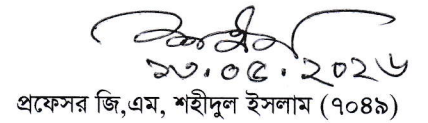 ১৩.০৫.২০২৬
প্রফেসর জি,এম, শহীদুল ইসলাম (৭০৪৯)